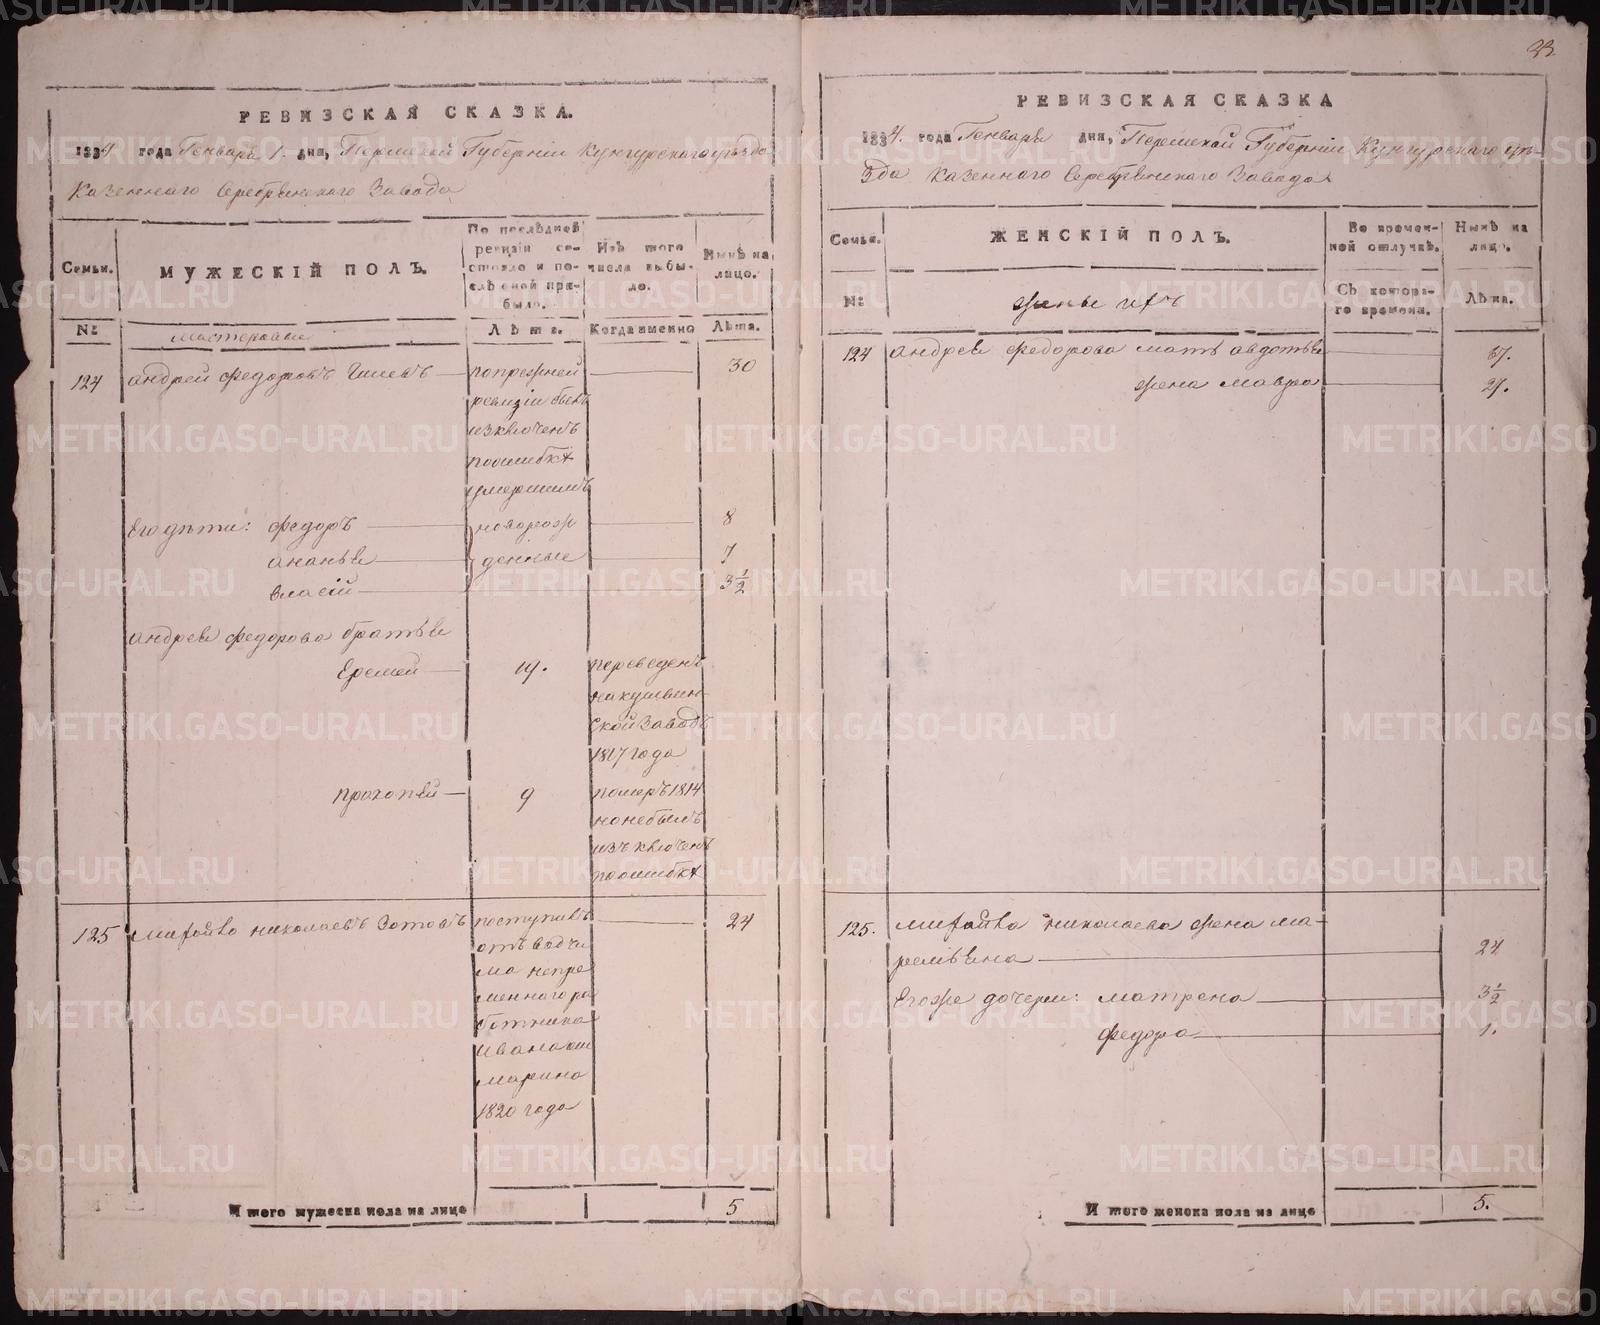 23.
РЕВИЗСКАЯ СКАЗКА.
1834 года Генваря 1. дня, Пермской Губерніи Кунгурского уезда
Казеннаго Серебрянского Завода
Семьи.
МУЖЕСКІЙ ПОЛЪ.
По послѣдней ревизіи состояло и послѣ оной прибыло.
Изъ того числа выбыло.
Нынѣ на лицо.
№
мастеровые
Лѣта.
Когда именно
Лѣта.
124 андрей федоровъ — попрежней — 30
ревизіи былъ
изключенъ
поошибкѣ
умершимъ
Его дѣти: федоръ — новорож — 8
ананья — денные — 7
власій — 3 1/2
андрея федорова братья
Еремей — 19. переведенъ
накушвин-
ской заводъ
1817 года
прокопей — 9 померъ 1814
нонебылъ
изъключенъ
поошибкѣ
125 михайло николаевъ Зотовъ поступилъ — 24
отъ вотчи
ма непре
меннаго ра
ботника
ивана
марина
1820 года
Итого мужеска пола на лицо 5
РЕВИЗСКАЯ СКАЗКА
1834. года Генваря дня, Пермской Губерніи Кунгурского уѣ-
зда Казенного Серебрянского Завода
Семьи.
ЖЕНСКІЙ ПОЛЪ.
Во временной отлучкѣ.
Нынѣ на лицо.
№
жены ихъ
Съ котораго времени.
Лѣта.
124 андрея федорова мать авдотья — 67.
жена мавра — 27.
125. михайла николаева жена ма-
ремьяна — 24
Егоже дочери: матрена — 3 1/2
федора — 1.
Итого женска пола на лицо 5.
METRIKI.GASO-URAL.RU